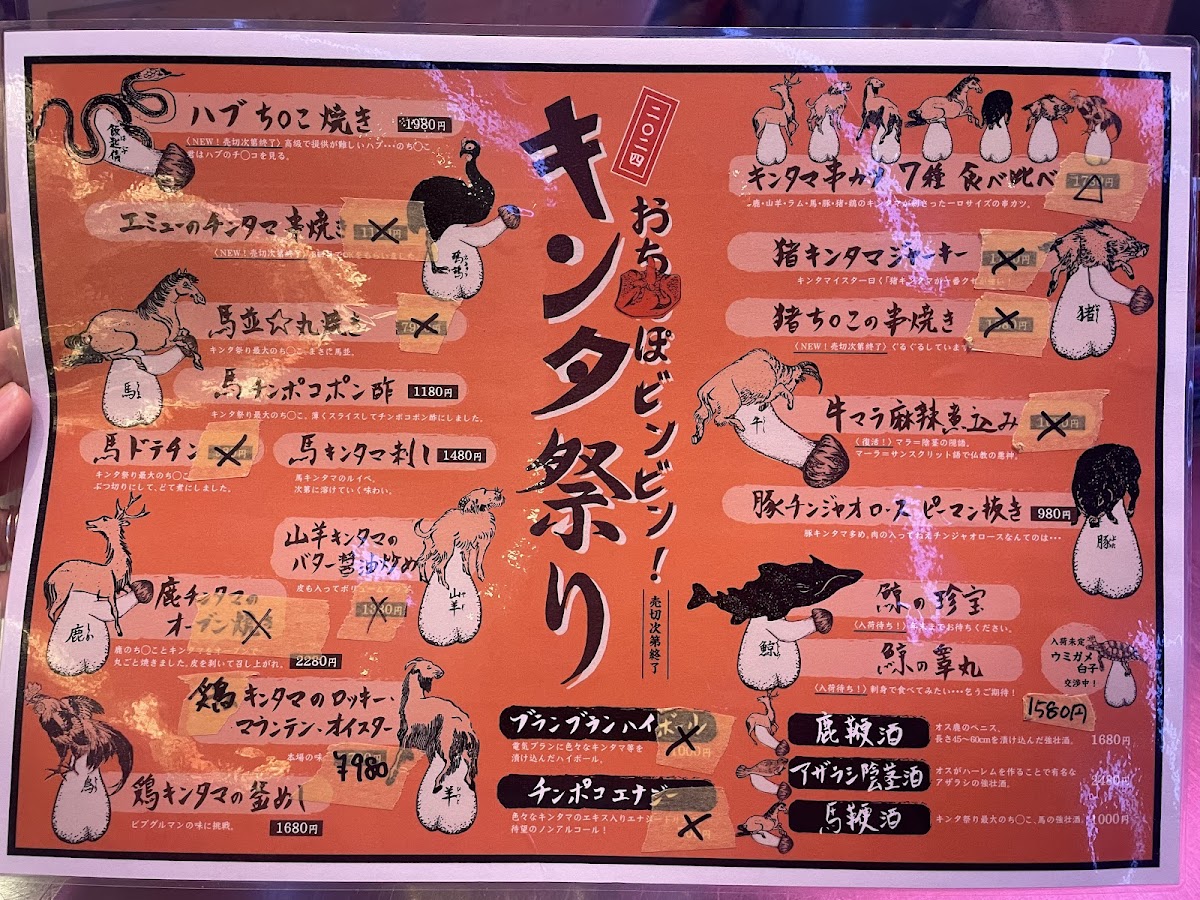 二〇二四
キンタマ祭り
おちんぽビンビン!
売切次第終了
ハブち〇こ焼き
1980円
〈NEW!売切次第終了〉高級で提供が難しいハブ…のち〇こ
君はハブのチ〇コを見る。
エミューのチンタマ串焼き
〈NEW!売切次第終了〉
馬並☆丸焼き
キンタ祭り最大のち〇こ、まさに馬並。
馬
馬チンポコポン酢
1180円
キンタ祭り最大のち〇こ、薄くスライスしてチンポコポン酢にしました。
馬ドテチン
キンタ祭り最大のち〇こ
ぶつ切りにして、どて煮にしました。
馬キンタマ刺し
1480円
馬キンタマのルイベ。
次第に溶けていく味わい。
山羊キンタマの
バター醤油炒め
皮も入ってボリュームアップ
山羊
鹿チンタマの
オーブン焼き
鹿
鹿のち〇ことキンタマをオーブンで
丸ごと焼きました。皮を剥いて召し上がれ。
2280円
鶏キンタマのロッキー・
マウンテン・オイスター
本場の味
¥980
羊
鶏キンタマの釜めし
ビブグルマンの味に挑戦。
1680円
キンタマ串カツ 7種 食べ比べ
鹿・山羊・ラム・馬・豚・猪・鶏のキンタマが刺さった一口サイズの串カツ。
猪キンタマジャーキー
キンタマイスター曰く「猪キンタマが一番クセ
猪ち〇この串焼き
〈NEW!売切次第終了〉ぐるぐるしています
猪
牛マラ麻辣煮込み
〈復活!〉マラ=陰茎の隠語。
マーラ=サンスクリット語で仏教の悪神。
牛
豚チンジャオロースピーマン抜き
980円
豚キンタマ多め、肉の入ってねえチンジャオロースなんてのは…
豚
鯨の珍宝
〈入荷待ち!〉
までお待ちください。
鯨の睾丸
〈入荷待ち!〉刺身で食べてみたい…乞うご期待!
鯨
入荷未定
ウミガメ
白子
交渉中!
1580円
ブランブランハイボール
電気ブランに色々なキンタマ等を
漬け込んだハイボール。
チンポコエナジー
色々なキンタマのエキス入りエナジードリンク
待望のノンアルコール!
鹿鞭酒
オス鹿のペニス、
長さ45〜60cmを漬け込んだ強壮酒。
1680円
アザラシ陰茎酒
オスがハーレムを作ることで有名な
アザラシの強壮酒。
馬鞭酒
キンタ祭り最大のち〇こ、馬の強壮酒。
1000円